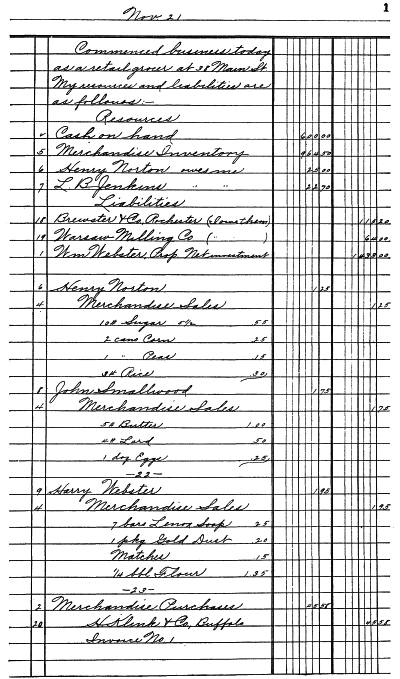 1
Nov 21
Commenced business today
as a retail grocer at 38 Main St
My resources and liabilities are
as follows:-
Resources
Cash on hand 600 00
5 Merchandise Inventory 964 50
6 Henry Norton owes me 25 00
7 L. B. Jenkins " " 22 70
Liabilities
18 Brewster & Co, Rochester (I owe them) 115 20
19 Warsaw Milling Co ( " ) 64 00
1 Wm Webster, Prop Net investment 1433 00
6 Henry Norton 1 25
4 Merchandise Sales 1 25
10# Sugar 5½ 55
2 cans Corn 25
1 " Peas 15
3# Rice 30
8 John Smallwood 1 75
4 Merchandise Sales 1 75
5# Butter 1 00
4# Lard 50
1 doz Eggs 25
—22—
9 Harry Webster 1 95
4 Merchandise Sales 1 95
7 bars Lenox Soap 25
1 pkg Gold Dust 20
Matches 15
¼ bbl Flour 1 35
—23—
2 Merchandise Purchases 45 58
20 H Klink & Co, Buffalo 45 58
Invoice No 1